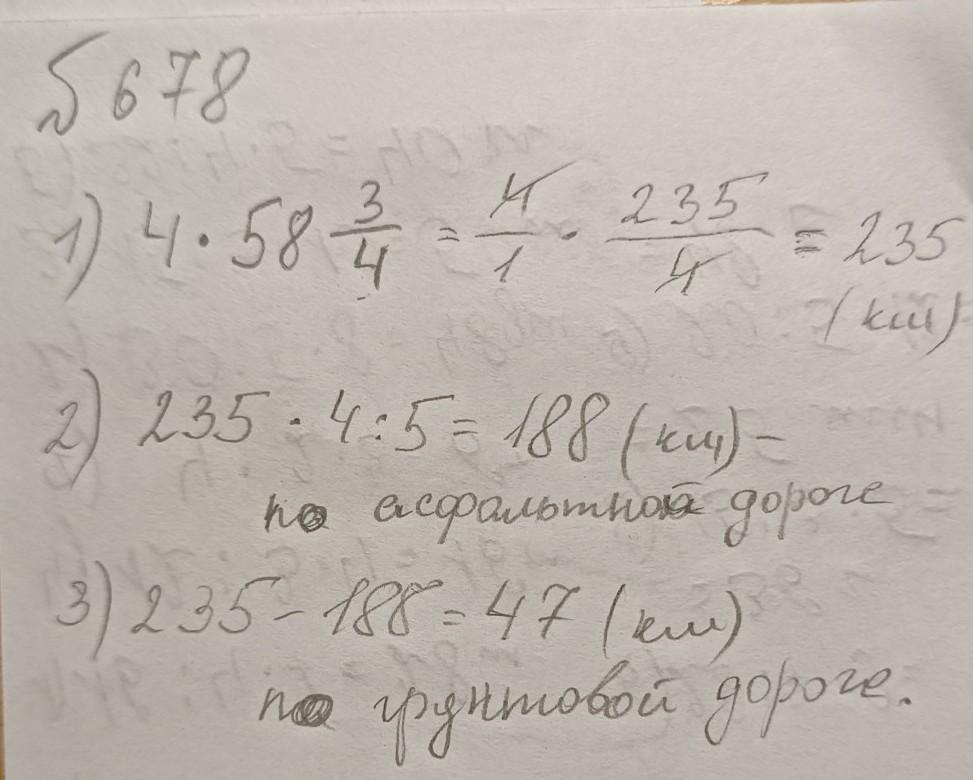 № 678
1) 4 · 58 3/4 = 4/1 · 235/4 = 235
(км)
2) 235 · 4 : 5 = 188 (км) –
по асфальтной дороге
3) 235 – 188 = 47 (км)
по грунтовой дороге.